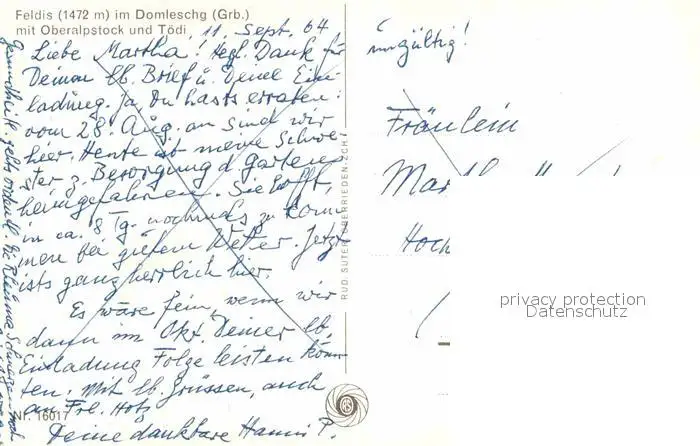 Feldis (1472 m) im Domleschg (Grb.)
mit Oberalpstock und Tödi
11. Sept. 64
Liebe Martha! Hzgl. Dank für
Deinen lb. Brief u. Deine Ein-
ladung. Ja, Du hasts erraten:
vom 28. Aug. an sind wir
hier. Heute ist meine Schwe-
ster z. Besorgung d. Gartens
heimgefahren. Sie hofft,
in ca. 8 Tg. nochmals zu kom-
men bei gutem Wetter. Jetzt
ists ganz herrlich hier.
Es wäre fein, wenn wir
dann im Okt. Deiner lb.
Einladung Folge leisten könn-
ten. Mit lb. Grüssen, auch
an Frl. Hotz
Deine dankbare Hanni P.
Nr. 16017
Gesundheitl. gehts
RUD. SUTER, OBERRIEDEN-ZCH.
ungültig!
Fräulein
privacy protection
Datenschutz